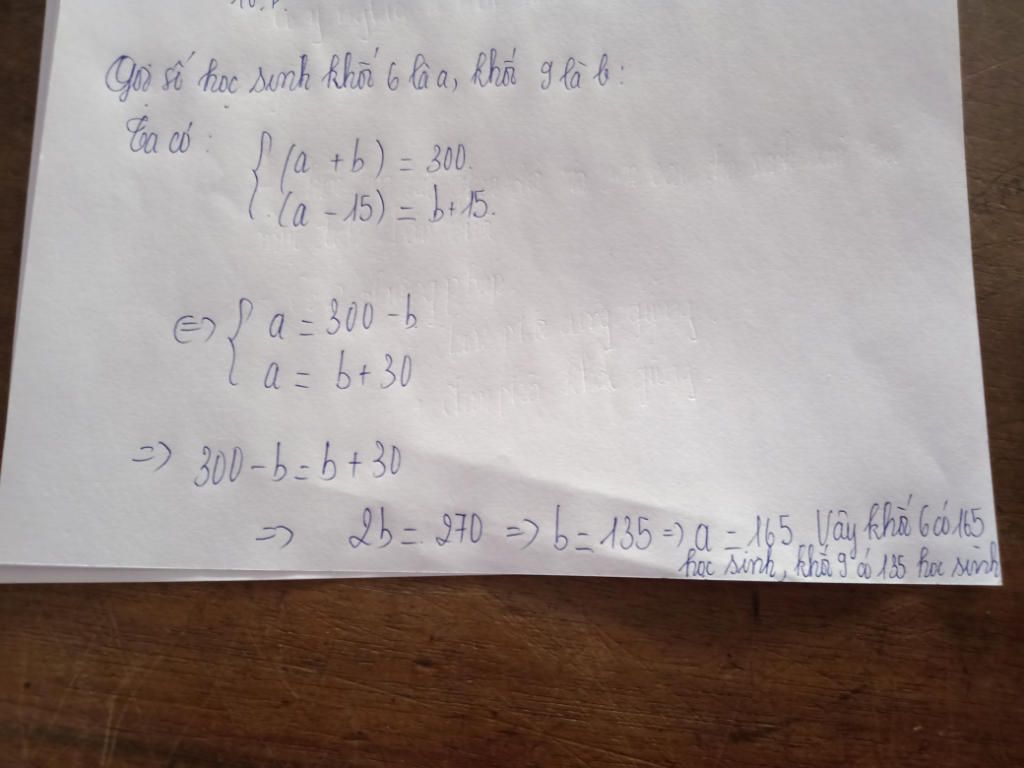 Gọi số học sinh khối 6 là a, khối 9 là b:
Ta có: { (a + b) = 300.
(a - 15) = b+15.
<=> { a = 300 - b
a = b + 30
=> 300 - b = b + 30
=> 2b = 270 => b = 135 => a = 165. Vậy khối 6 có 165
học sinh, khối 9 có 135 học sinh